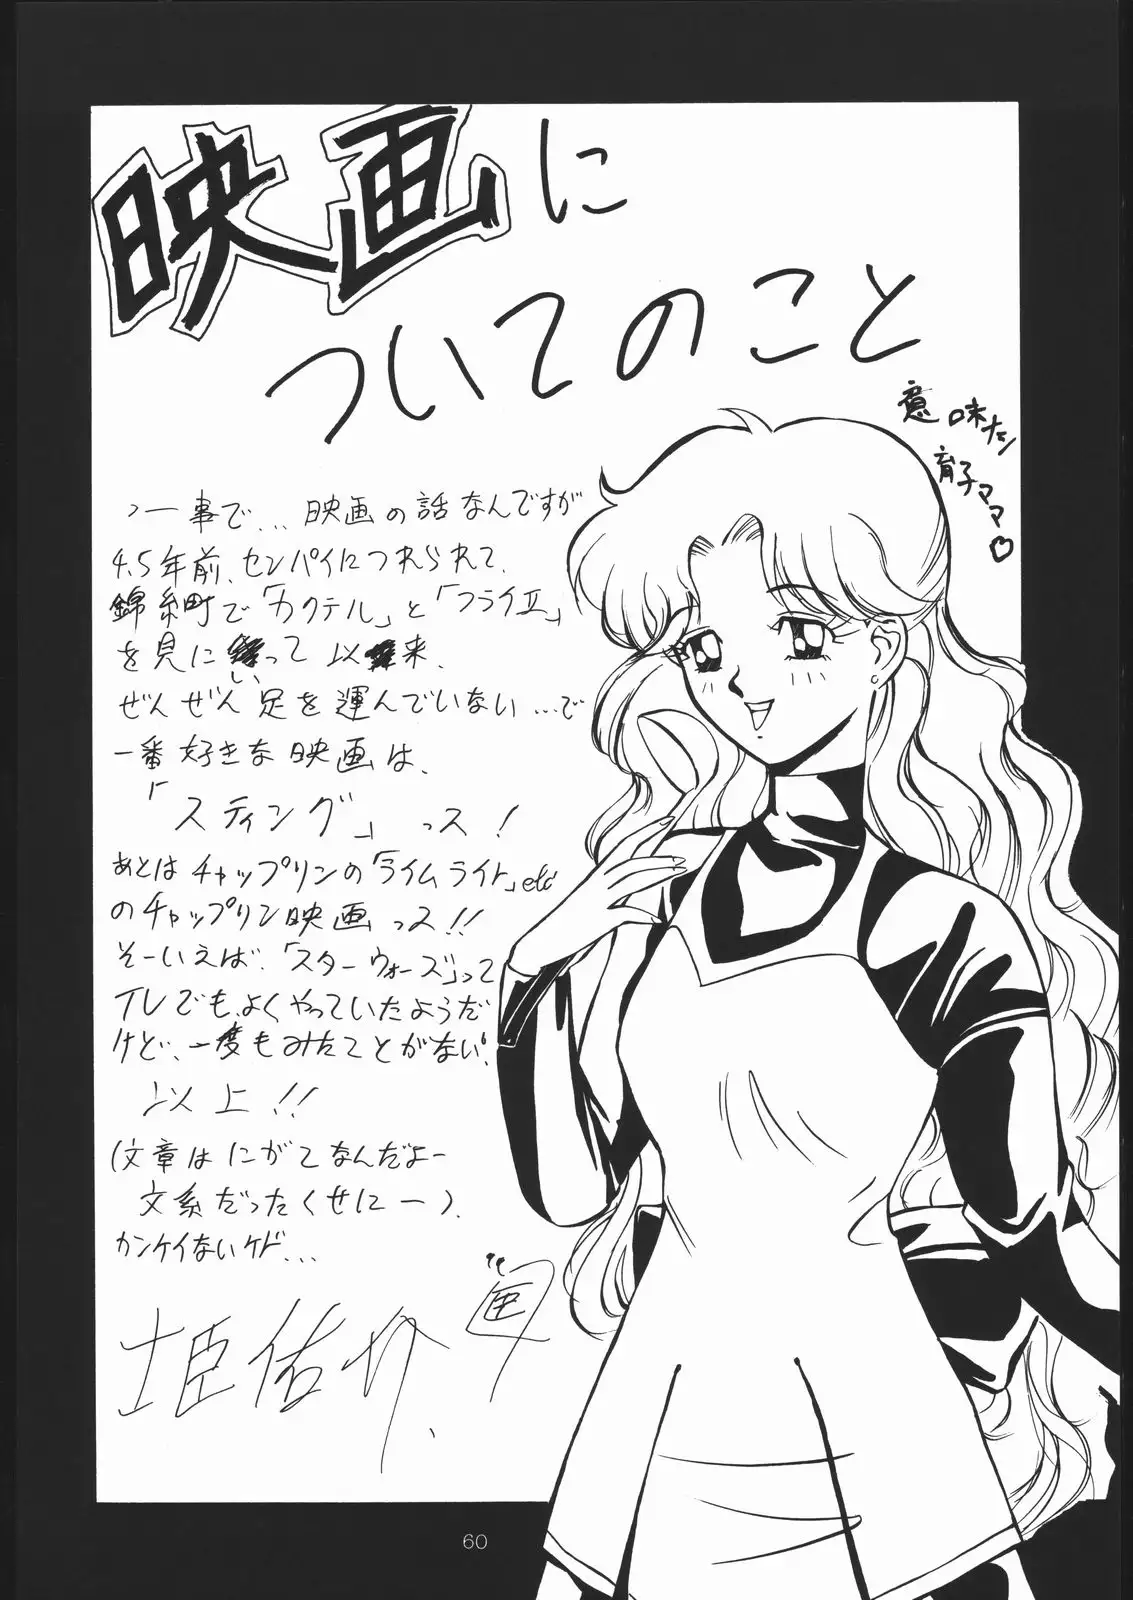 映画に
ついてのこと
意味なし
育子ママ♡
つー事で…映画の話なんですが
4,5年前、センパイにつれられて、
錦糸町で「カクテル」と「フライⅡ」
を見に行って以来、
ぜんぜん足を運んでいない…で
一番好きな映画は、
「スティング」っス!
あとはチャップリンの「ライムライト」etc
のチャップリン映画っス!!
そーいえば、「スターウォーズ」って
TVでもよくやっていたようだ
けど、一度もみたことがない!
以上!!
(文章はにがてなんだよー
文系だったくせにー)。
カンケイないケド…
姫佑介
60